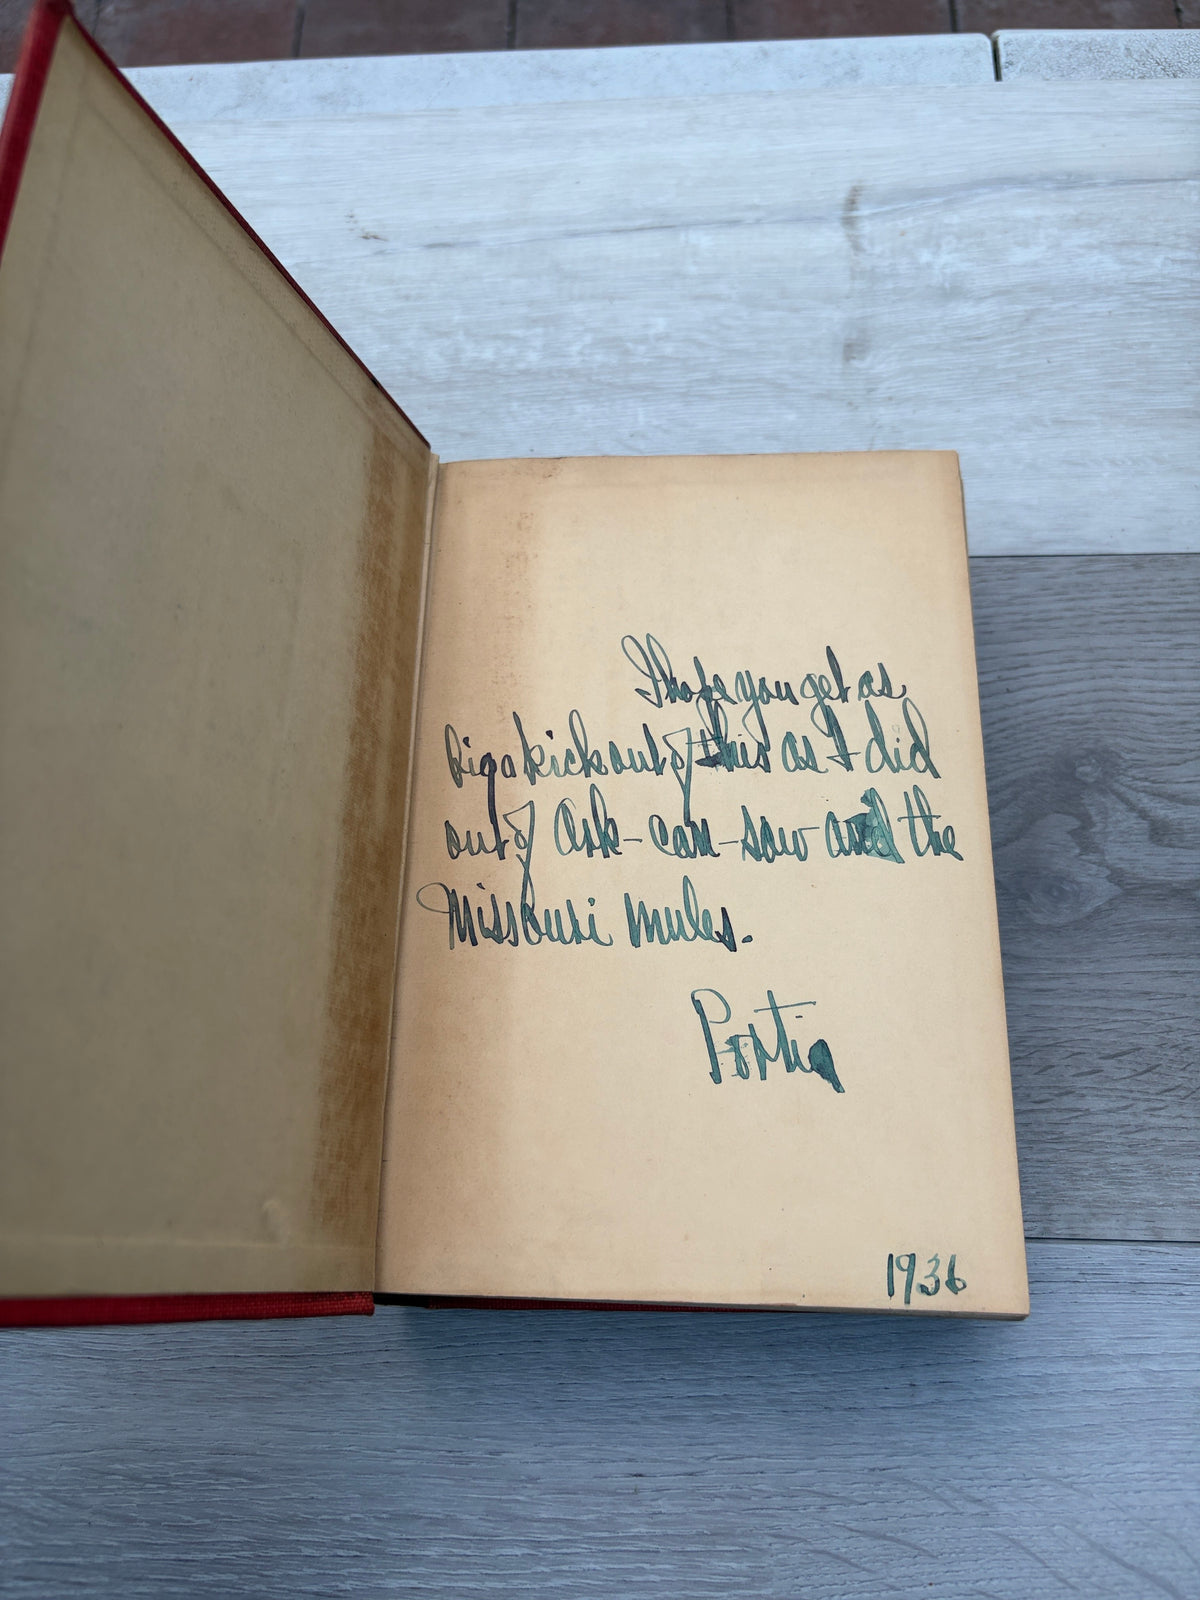 I hope you get as
big a kick out of this as I did
out of Ark-can-saw and the
Missouri mules.
Portia
1936